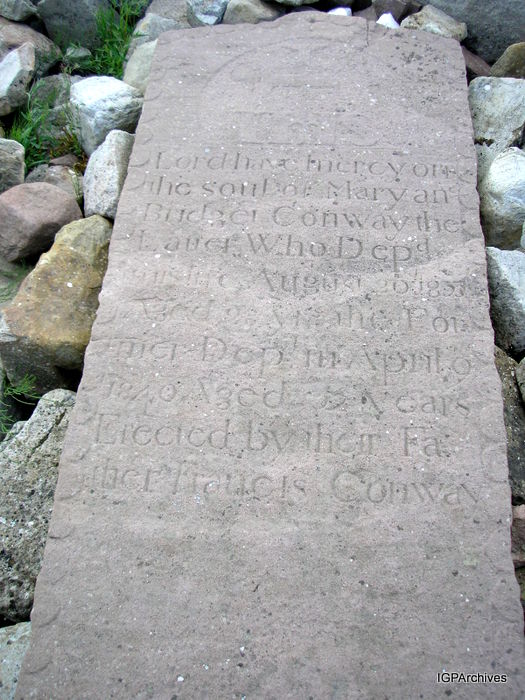 IHS
Lord have mercy on
the soul of Mary an
Bridget Conway the
Latter Who Dep.d
this life August 20 18
Aged 2 yrs the For
mer Dep.d in April 9
1840 Aged years
Erected by their Fa
ther Francis Conway
IGPArchives